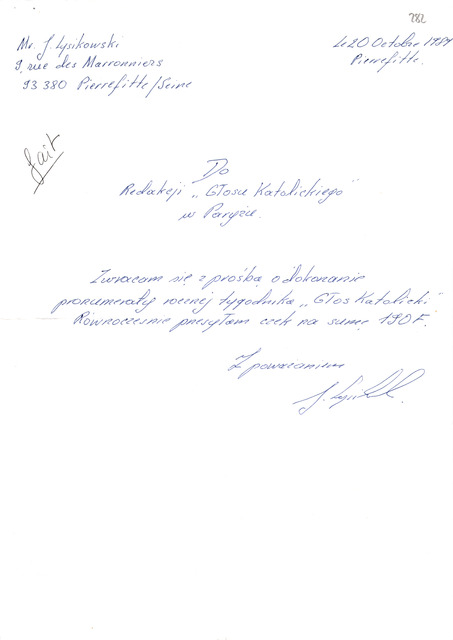 282
Mr. J. Lysikowski
9, rue des Marronniers
93 380 Pierrefitte/Seine
Le 20 Octobre 1989
Pierrefitte.
fait
Do
Redakcji „Głosu Katolickiego"
w Paryżu.
Zwracam się z prośbą o dokonanie
prenumeraty rocznej tygodnika „Głos Katolicki"
Równocześnie przesyłam czek na sumę 190 F.
Z poważaniem